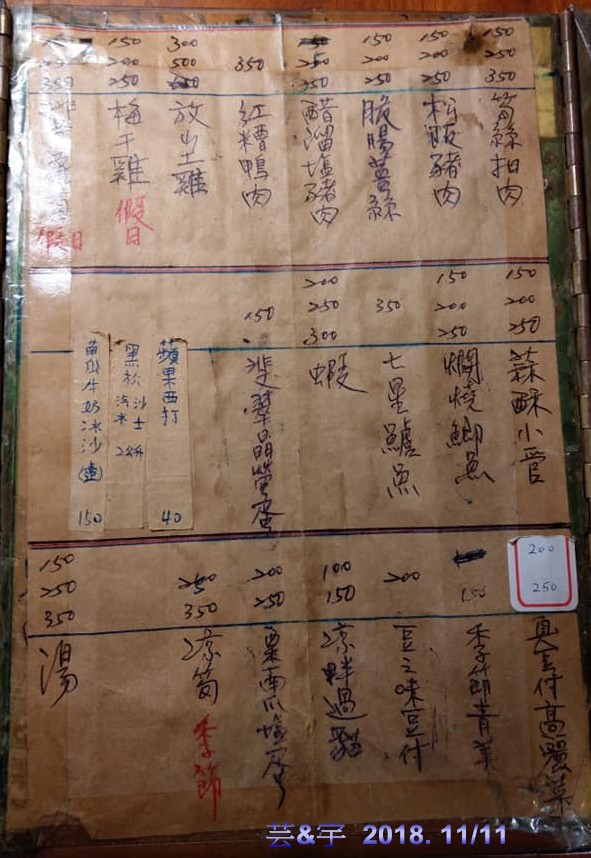 筍絲扣肉
150
250
350
松阪豬肉
150
200
250
脆腸薑絲
150
200
250
醋溜塩豬肉
250
350
紅糟鴨肉
350
放山土雞
300
500
梅干雞
假日
150
200
250
假日
350
蒜酥小管
150
200
250
燜燒鯽魚
150
200
250
七星鱸魚
350
蝦
200
250
300
翡翠晶瑩蛋
150
蘋果西打
40
黑松沙士
汽水
2公升
牛奶冰沙(壺)
150
高麗菜
200
250
季節青菜
150
豆之味豆付
200
凉拌過貓
100
150
栗南瓜塩蛋
200
250
凉筍
季節
350
湯
150
250
350
芸&宇 2018. 11/11